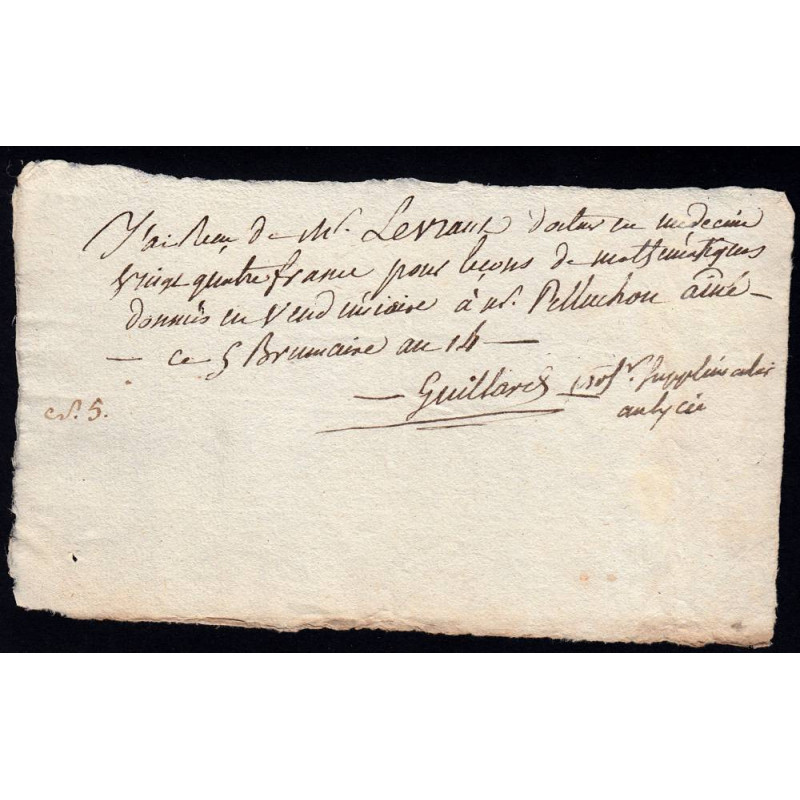 J'ai Reçu de Mr. Levraut docteur en médecine
vingt quatre francs pour leçons de mathématiques
données en Vendémiaire à Mr. Pelluchon aîné
— ce 5 Brumaire an 14 —
— Guillard profr. Supplémentaire
au lycée
N°. 5.